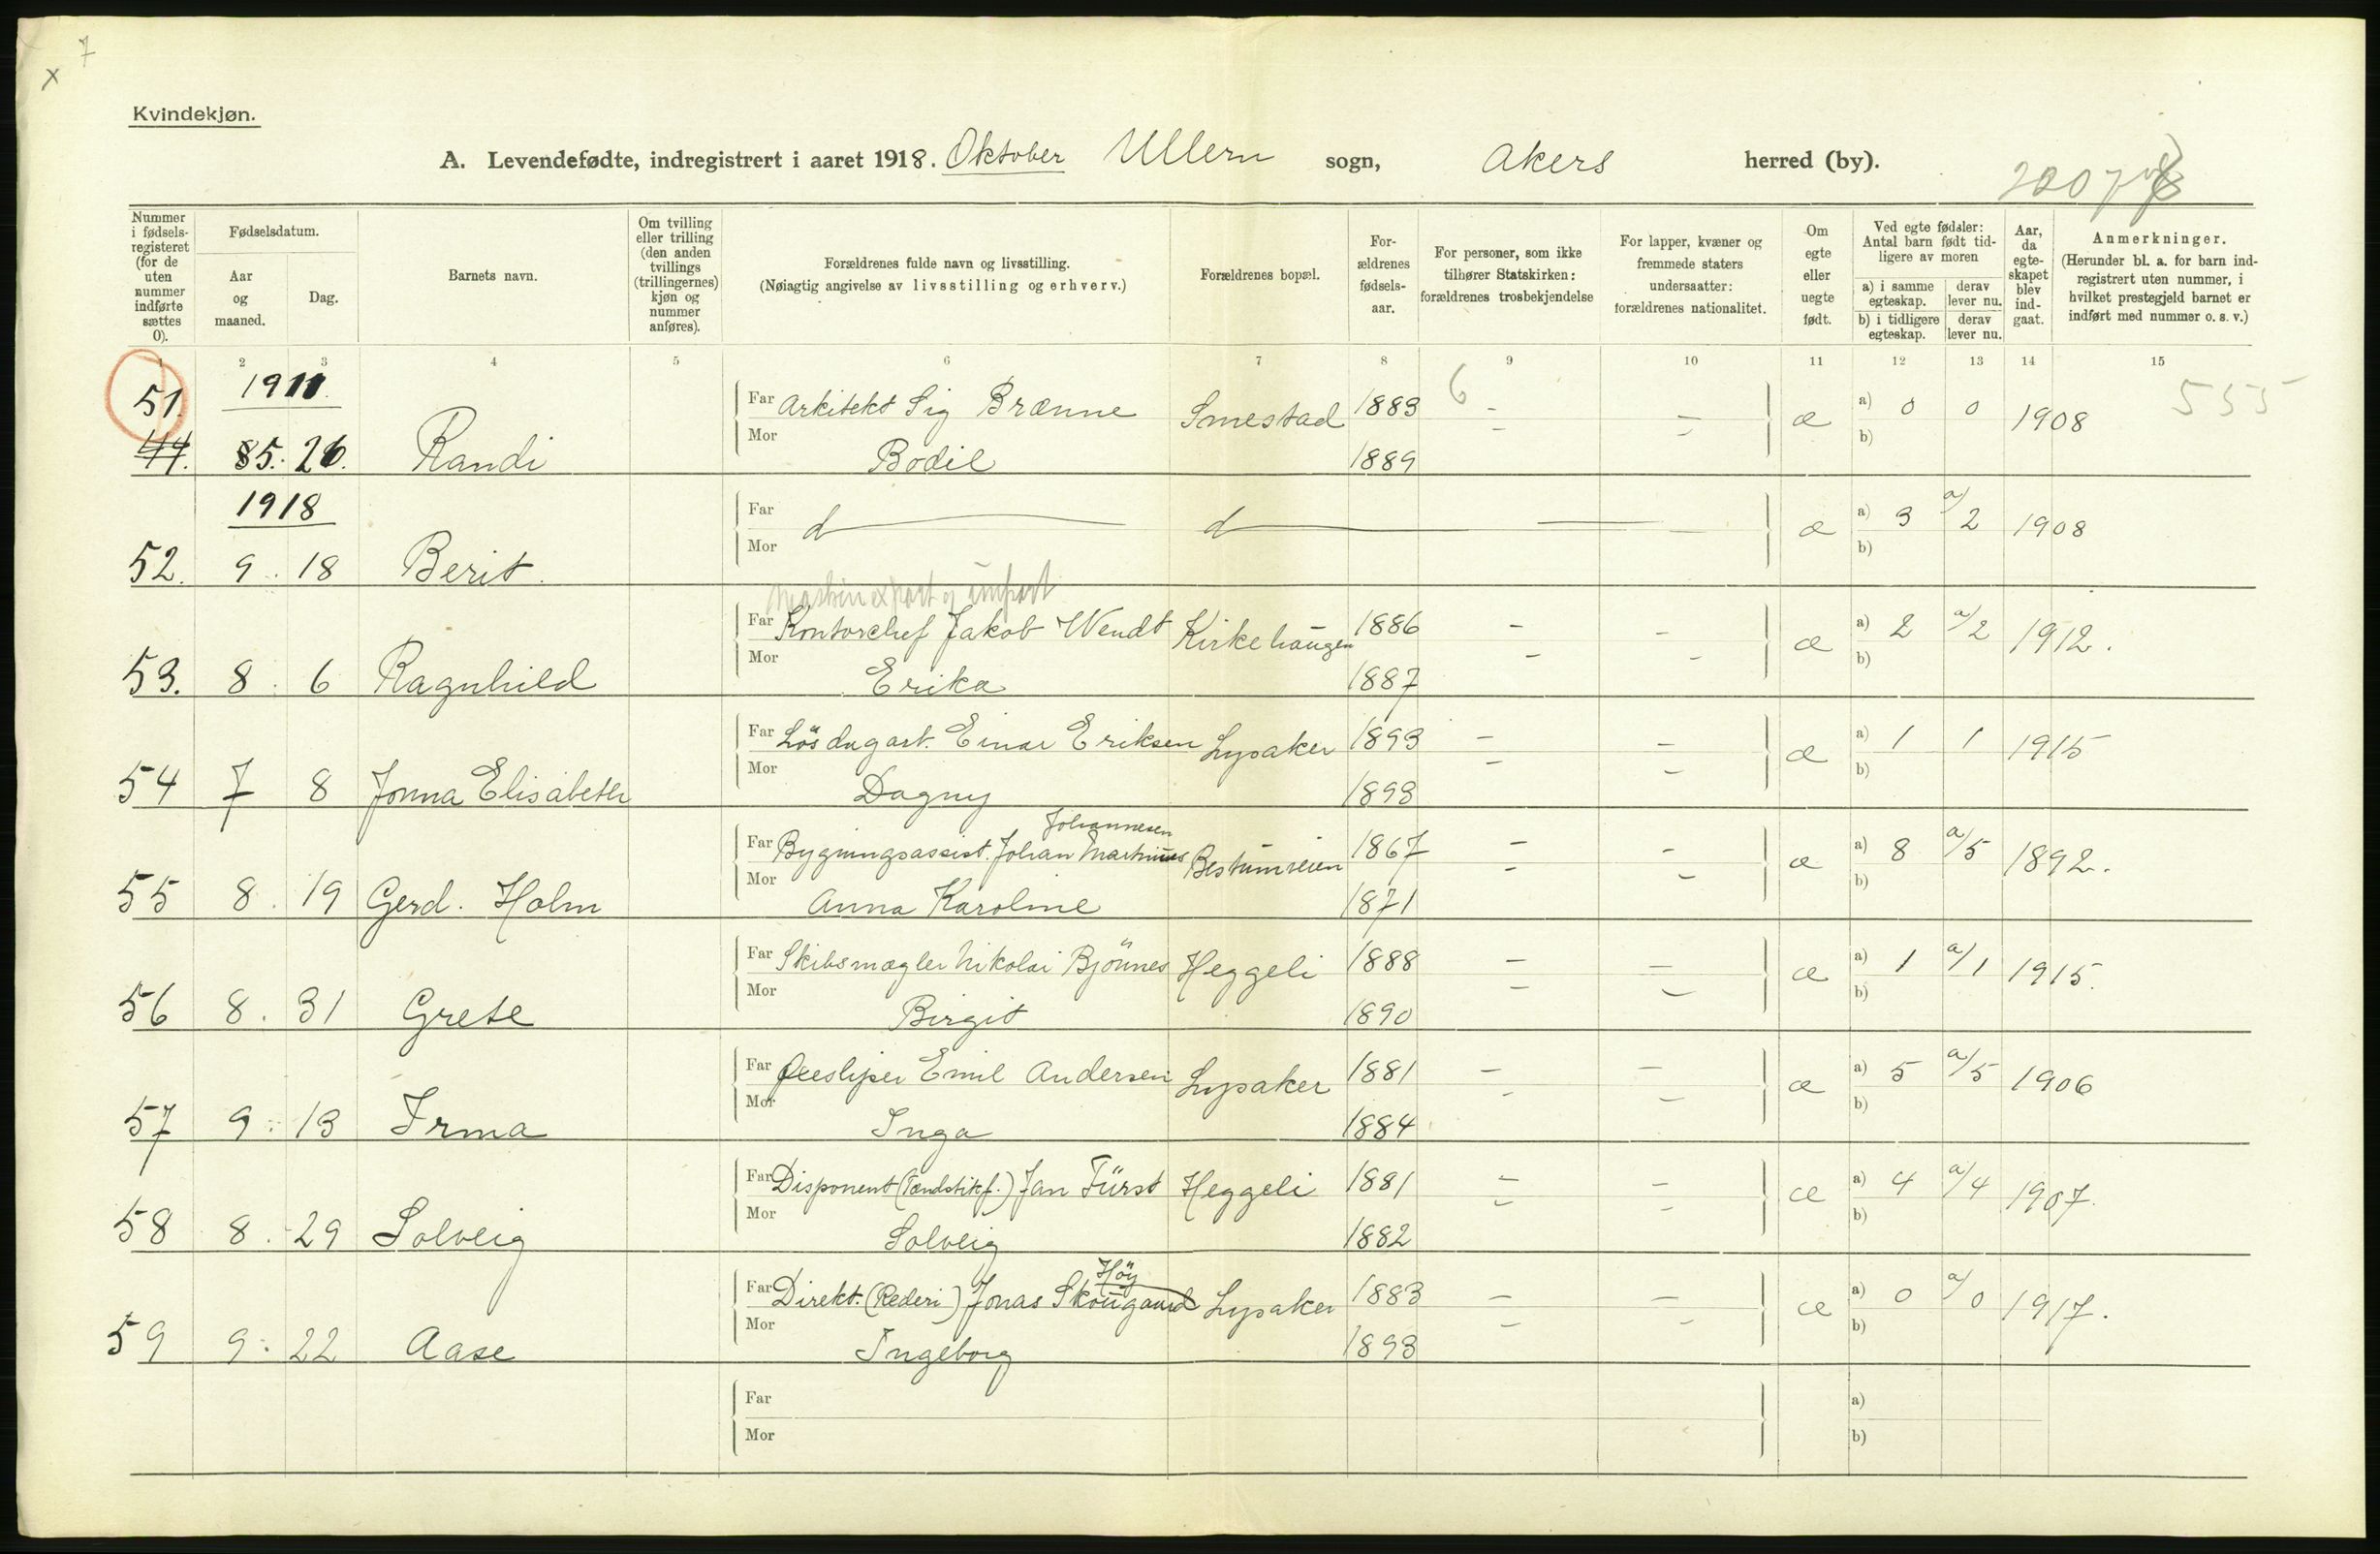 7
x
Kvindekjøn.
A. Levendefødte, indregistrert i aaret 1918. Oktober Ullern sogn, Akers herred (by).
Nummer i fødsels-registeret (for de uten nummer indførte sættes 0).
Fødselsdatum.
Aar og maaned.
Dag.
Barnets navn.
Om tvilling eller trilling (den anden tvillings (trillingernes) kjøn og nummer anføres).
Forældrenes fulde navn og livsstilling.
(Nøiagtig angivelse av livsstilling og erhverv.)
Forældrenes bopæl.
For-ældrenes fødsels-aar.
For personer, som ikke tilhører Statskirken: forældrenes trosbekjendelse
For lapper, kvæner og fremmede staters undersaatter: forældrenes nationalitet.
Om egte eller uegte født.
Ved egte fødsler: Antal barn født tid-ligere av moren
a) i samme egteskap. derav lever nu.
b) i tidligere egteskap. derav lever nu.
Aar, da egte-skapet blev ind-gaat.
Anmerkninger.
(Herunder bl. a. for barn ind-registrert uten nummer, i hvilket prestegjeld barnet er indført med nummer o. s. v.)
1 2 3 4 5 6 7 8 9 10 11 12 13 14 15
51. 1911 Far Arkitekt Sig Brænne Smestad 1883 6 - - æ a) 0 0 1908 555
44. 5. 26. Randi Mor Bodil 1889 - - b)
1918 Far d d æ a) 3 a/2 1908
52. 9. 18 Berit. Mor b)
Maskinexport og import
Far Kontorchef Jakob Wendt Kirkehaugen 1886 - - æ a) 2 a/2 1912.
53. 8. 6 Ragnhild Mor Erika 1887 - - b)
Far Løsdagarb. Einar Eriksen Lysaker 1893 - - æ a) 1 1 1915
54 7 8 Jonna Elisabeth Mor Dagny 1893 - - b)
Johannesen
Far Bygningsassist. Johan Martinius Bestumveien 1867 - - æ a) 8 a/5 1892.
55 8. 19 Gerd. Holm Mor Anna Karoline 1871 - - b)
Far Skibsmægler Nikolai Bjønnes Heggeli 1888 - - æ a) 1 a/1 1915.
56 8. 31 Grete Mor Birgit 1890 - - b)
Far Emil Andersen Lysaker 1881 - - æ a) 5 a/5 1906
57 9. 13 Irma Mor Inga 1884 - - b)
Far Disponent (Tændstikf.) Jan Fürst Heggeli 1881 - - æ a) 4 a/4 1907.
58 8. 29 Solveig Mor Solveig 1882 - - b)
Höy
Far Direkt. (Rederi) Jonas Skougaard Lysaker 1883 - - æ a) 0 a/0 1917.
59 9. 22 Aase Mor Ingeborg 1893 - - b)
Far a)
Mor b)